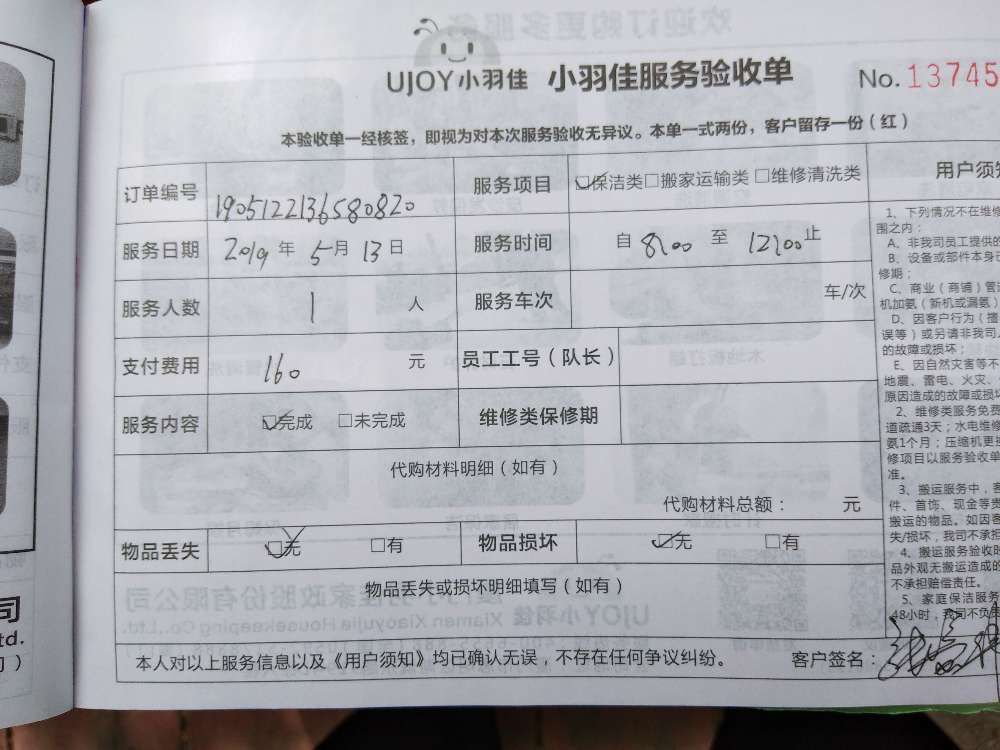 UJOY小羽佳 小羽佳服务验收单 No.13745
本验收单一经核签，即视为对本次服务验收无异议。本单一式两份，客户留存一份（红）
订单编号 1905122136580820 服务项目 ☑保洁类☐搬家运输类☐维修清洗类
服务日期 2019年5月13日 服务时间 自8:00至12:00止
服务人数 1人 服务车次 车/次
支付费用 160元 员工工号（队长）
服务内容 ☑完成 ☐未完成 维修类保修期
代购材料明细（如有）
代购材料总额： 元
物品丢失 ☑无 ☐有 物品损坏 ☑无 ☐有
物品丢失或损坏明细填写（如有）
本人对以上服务信息以及《用户须知》均已确认无误，不存在任何争议纠纷。 客户签名：
用户须知
1、下列情况不在维修
围之内：
A、非我司员工提供的
B、设备或部件本身已
修期；
C、商业（商铺）管道
机加氨（新机或漏氨）
D、因客户行为（擅
误等）或另请非我司人
的故障或损坏；
E、因自然灾害等不
地震、雷电、火灾、
原因造成的故障或损坏
2、维修类服务免费
道疏通3天；水电维修
氨1个月；压缩机更换
修项目以服务验收单
准。
3、搬运服务中，客
件、首饰、现金等贵
搬运的物品。如因客
失/损坏，我司不承担
4、搬运服务验收时
品外观无搬运造成的
不承担赔偿责任。
5、家庭保洁服务
48小时，我司不负责
司
td.
门）